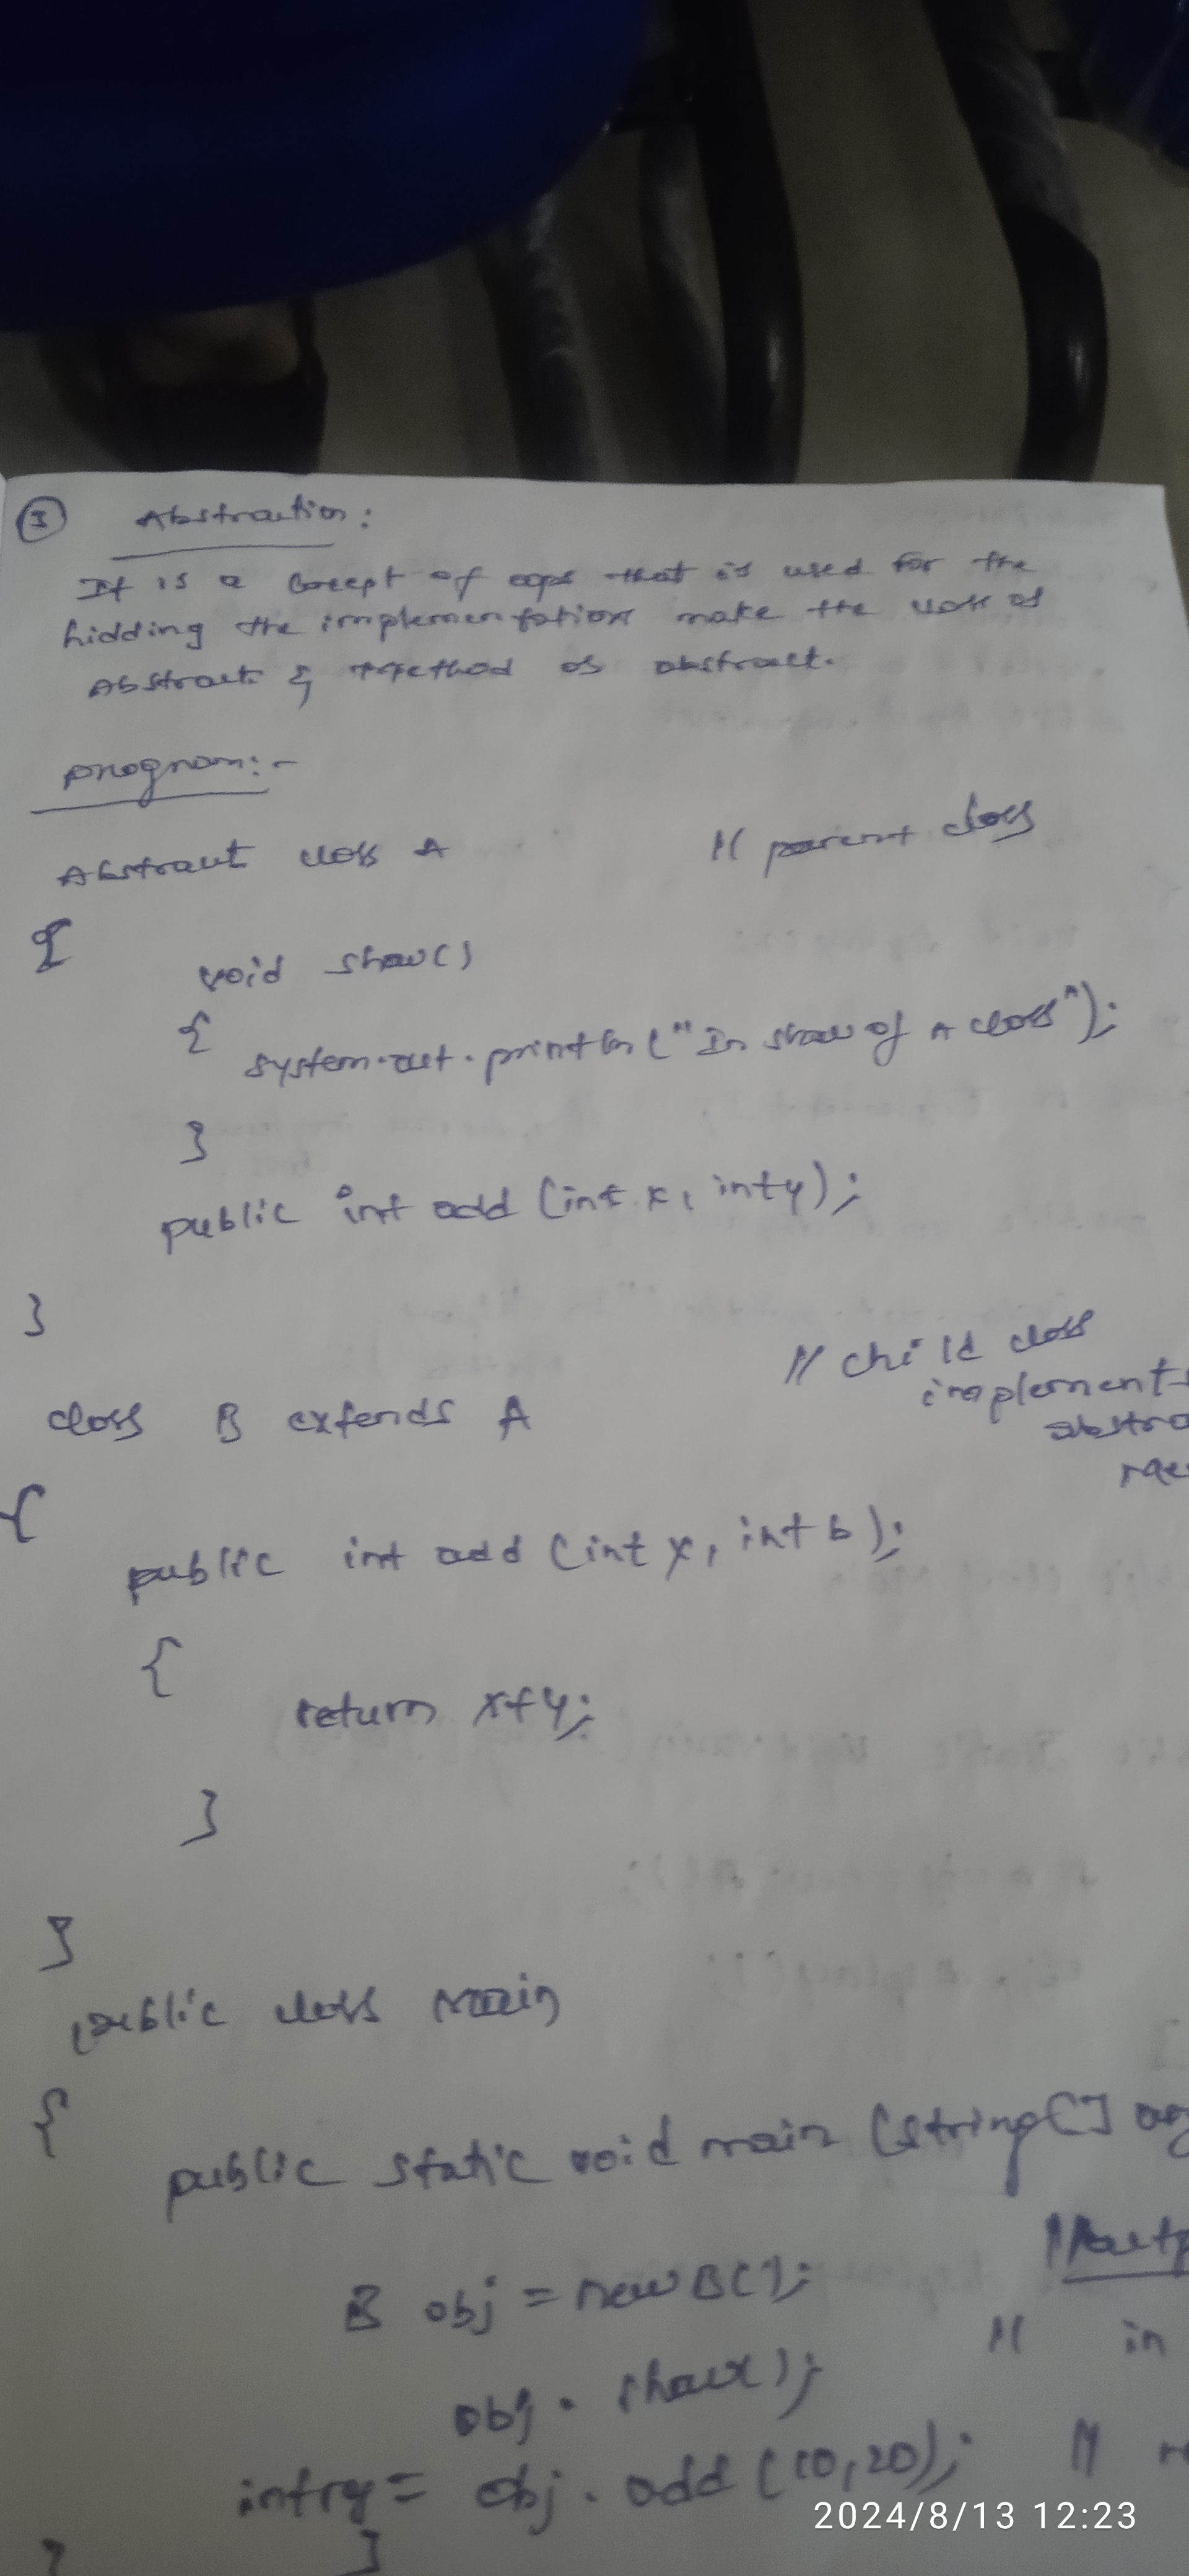 3 Abstraction:
It is a Cocept of oops that is used for the
hidding the implementation make the class as
Abstract & method as abstract.
program:-
Abstract class A // parent class
{
void show()
{
System.out.println("In show of A class");
}
public int add (int x, int y);
}
class B extends A // child class
implement
abstra
{
public int add (int x, int b);
{
return x+y;
}
}
public class main
{
public static void main (String[] arg
B obj = new B();
obj . show();
// in
obj . add (10,20); //
}
2024/8/13 12:23